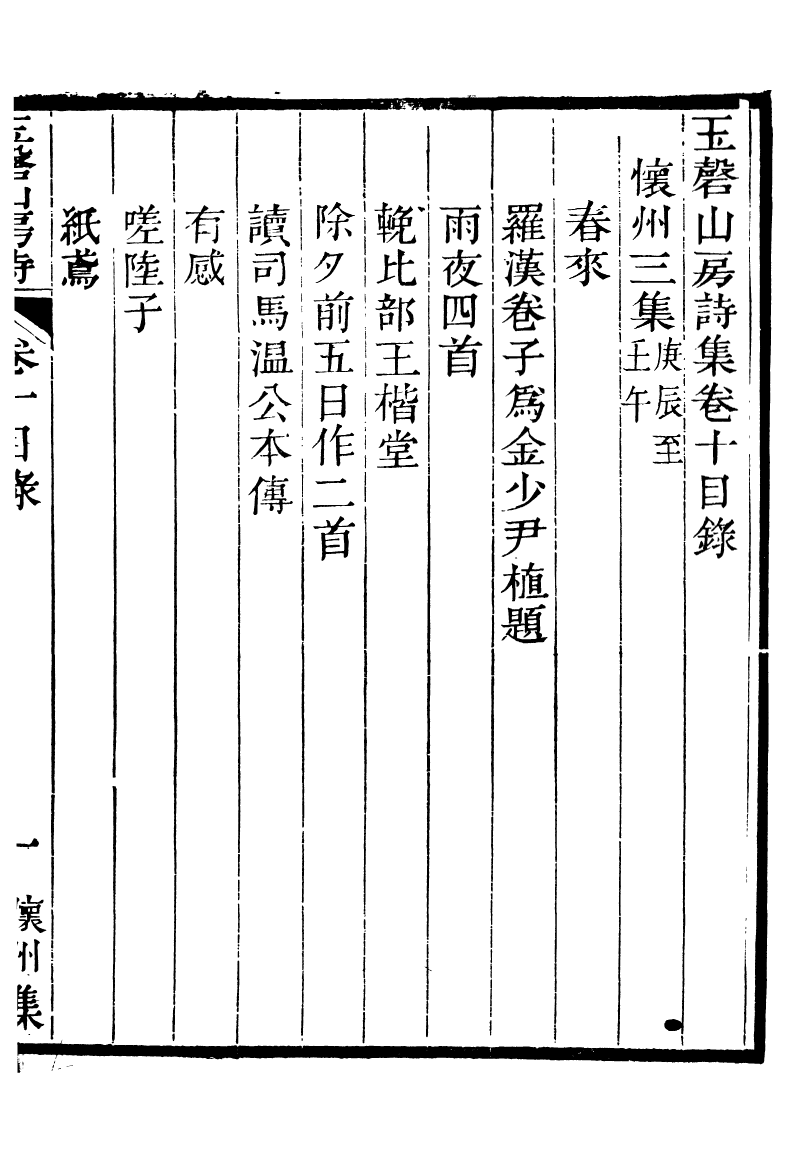 玉磬山房詩集卷十目錄
懷州三集庚辰至壬午
春來
羅漢卷子爲金少尹植題
雨夜四首
輓比部王楷堂
除夕前五日作二首
讀司馬温公本傳
有感
嗟陸子
紙鳶
玉磬山房詩 卷十目錄 一 懷州集